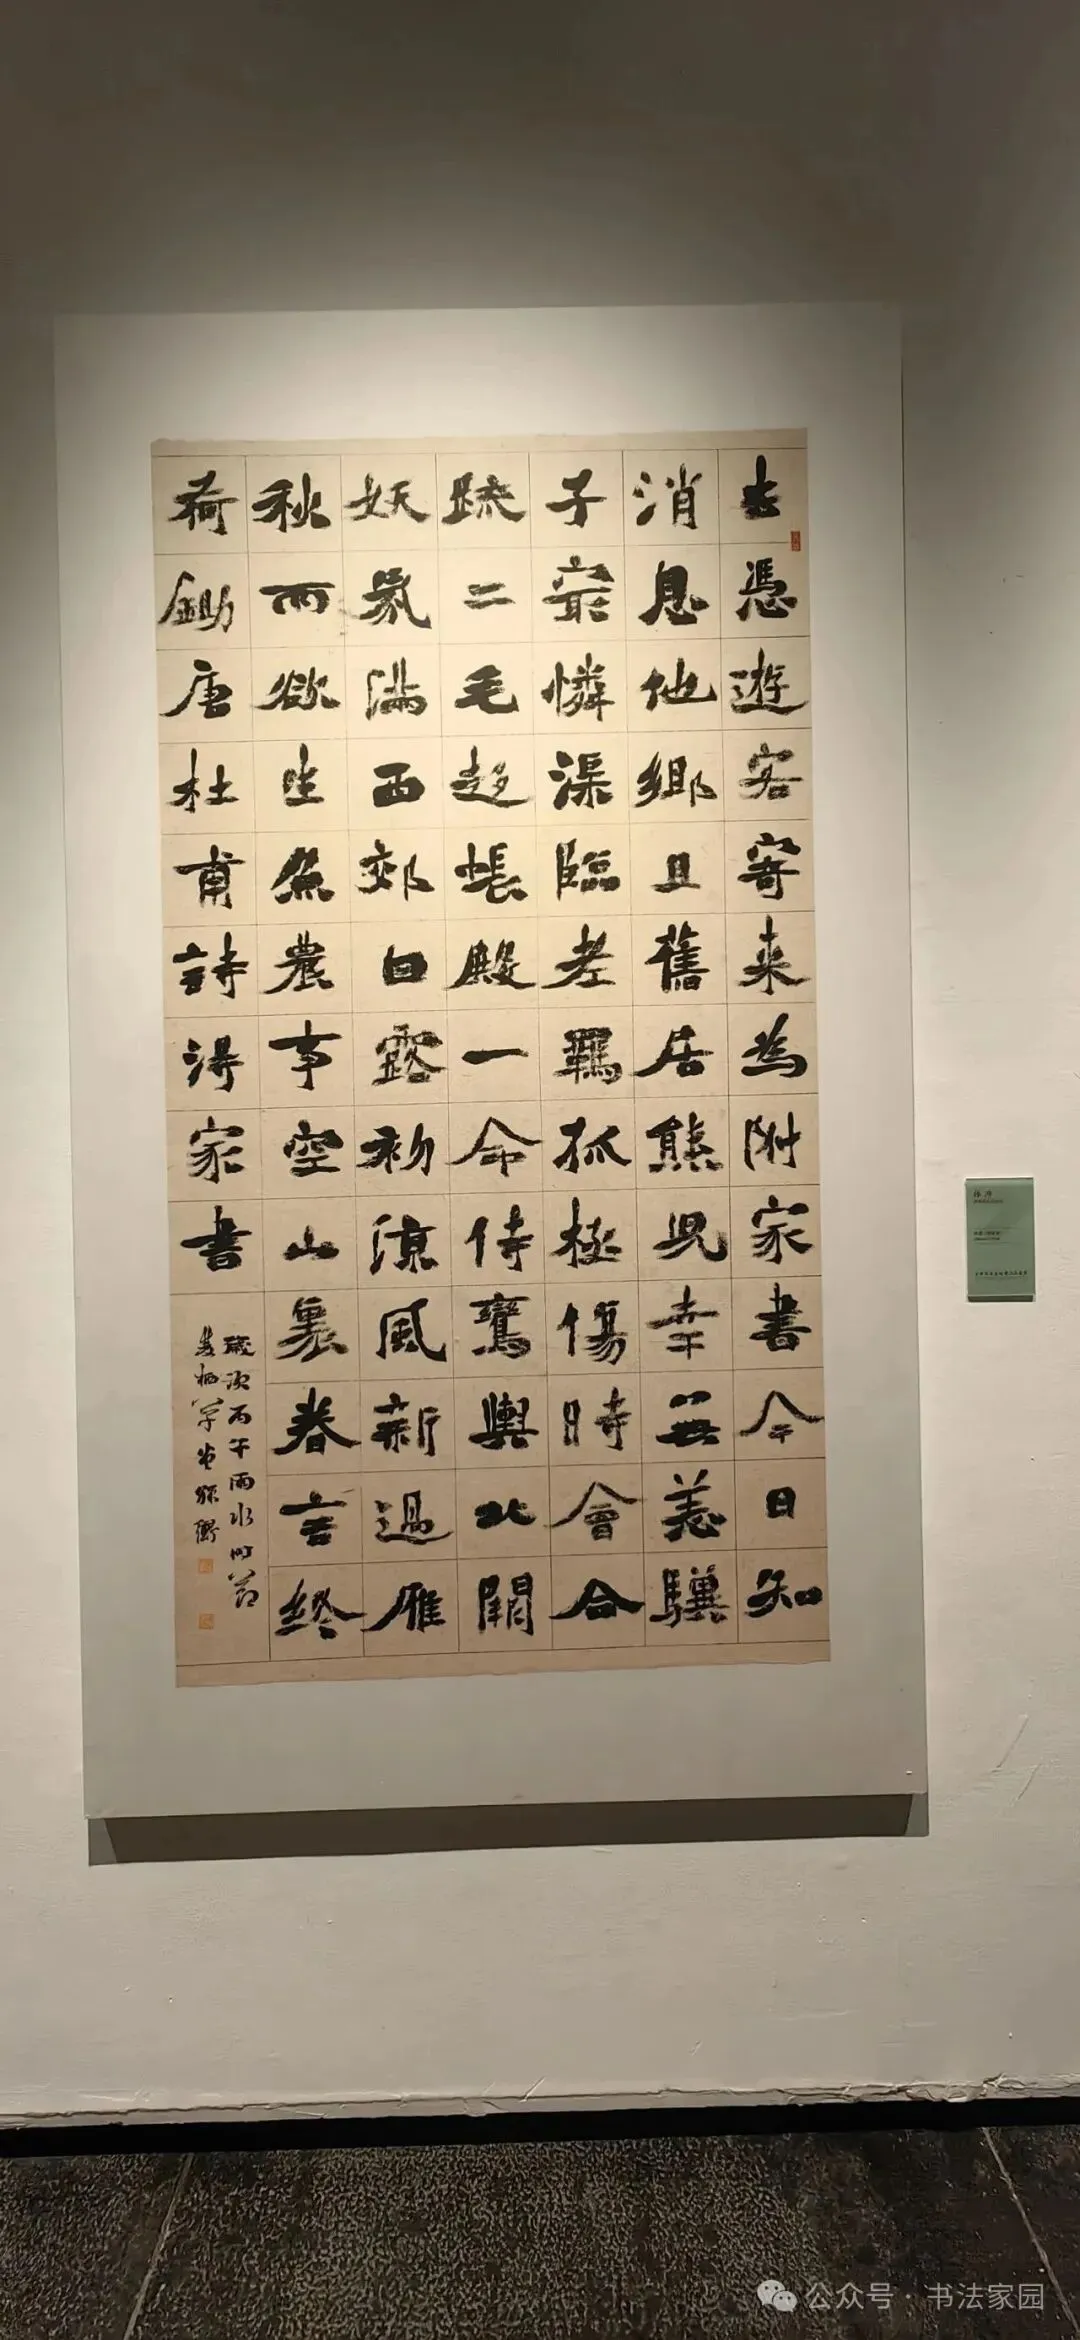 去憑遊客寄来為附家書今日知
消息他鄉且舊居熊兒幸無恙驥
子最憐渠臨老羈孤極傷時會合
踈二毛趍帳殿一命侍鸞輿北闕
妖氛滿西郊白露初涼風新過雁
秋雨欲生魚農事空山裏眷言終
荷鋤唐杜甫詩得家書
歲次丙午雨水時節
栖草堂
公众号·书法家园